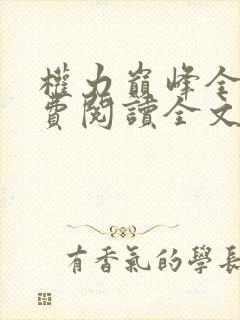 權力巔峰全
費閱讀全文
有香氣的學長